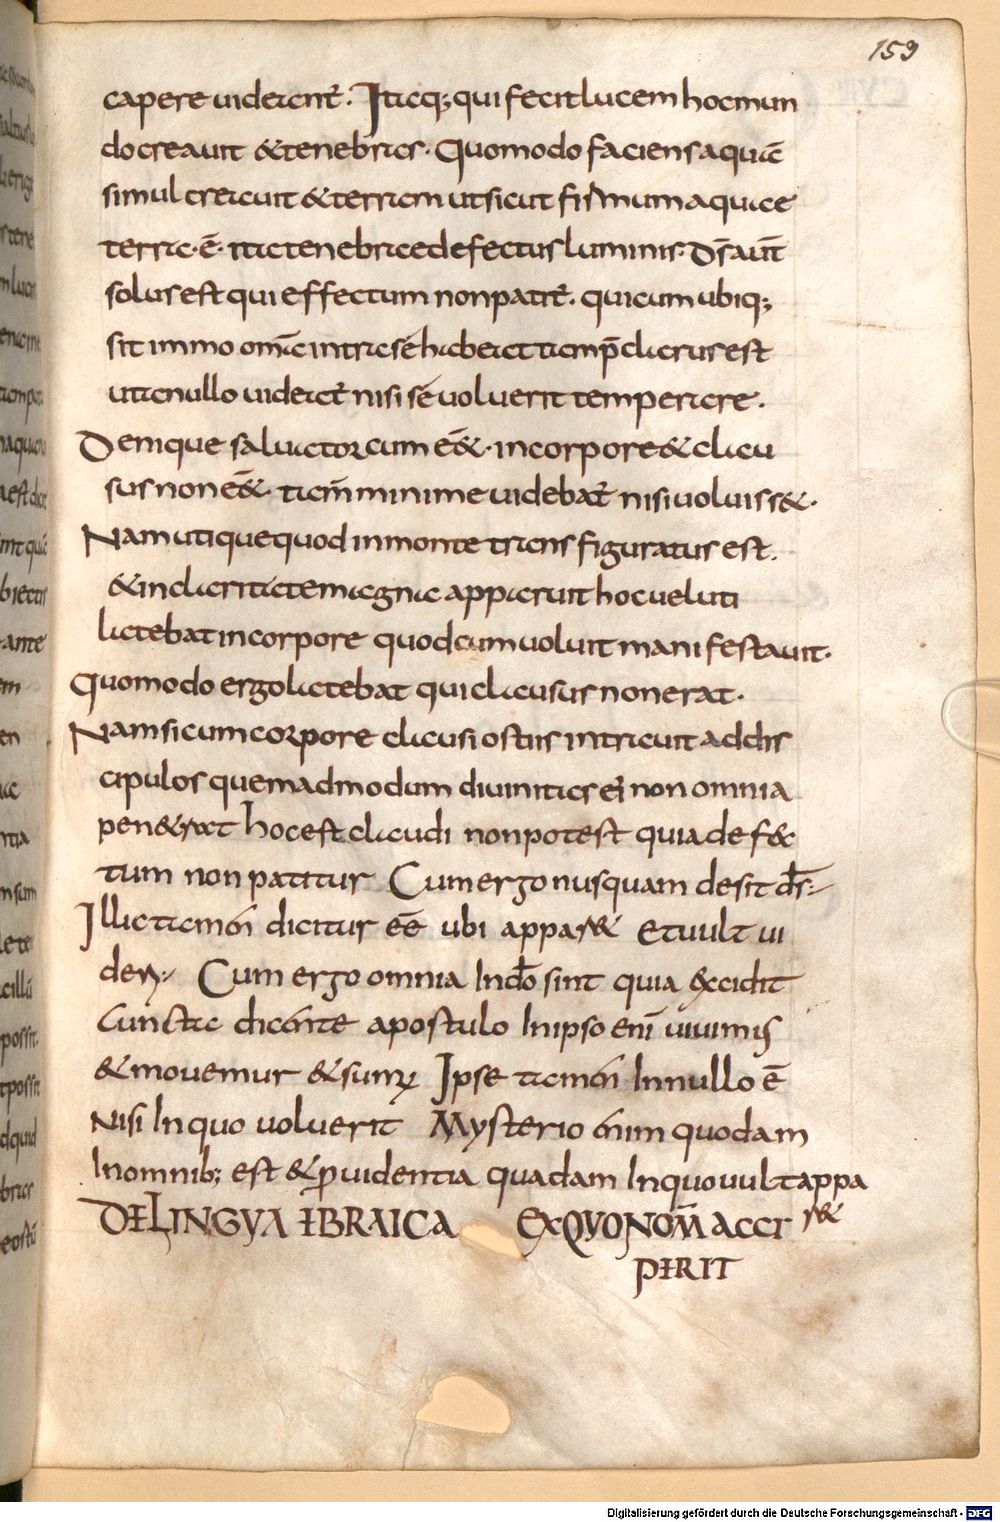 159
capere uiderent̃. Itaq; qui fecit lucem hoc mun
do creauit & tenebras. Quomodo faciens aquā
simul creauit & terram ut sicut firmum aquae
terra. ē. ita tenebrae defectus luminis. Dr̄ aūt
solus est qui effectum non patit̃. qui cum ubiq;
sit immo om̄a intra sé habeat tamp̄ clarus est
uta nullo uideat̃ nisi sé uoluerit temperare.
Denique saluator cum ēēt. in corpore & clau
sus non ēēt. tam̄ minime uidebat̃ nisi uoluiss&.
Nam utique quod in monte trans figuratus est.
& in claritate magna apparuit hoc ueluti
latebat in corpore quod cum uoluit mani festauit.
Quomodo ergo latebat qui clausus non erat.
Nam si cum corpore clausi ostiis intrauit ad dis
cipulos quemadmodum diuinitas ei non omnia
pen&rat hoc est claudi non potest quia de fec
tum non patitur Cum ergo nusquam desit ds̄.
Illic tamen dicitur éē ubi appar& Et uult ui
deri. Cum ergo omnia In dō sint quia excidit
cuncta dicente apostulo In ipso enī uiuimus
& mouemur & sumus Ipse tamen In nullo ē
Nisi In quo uoluerit Mysterio enim quodam
In omnib; est & ꝓuidentia quadam In quo uult appa
r&
DE LINGVA EBRAICA EX QVO NOM̄ ACCI
PERIT
Digitalisierung gefördert durch die Deutsche Forschungsgemeinschaft - DFG